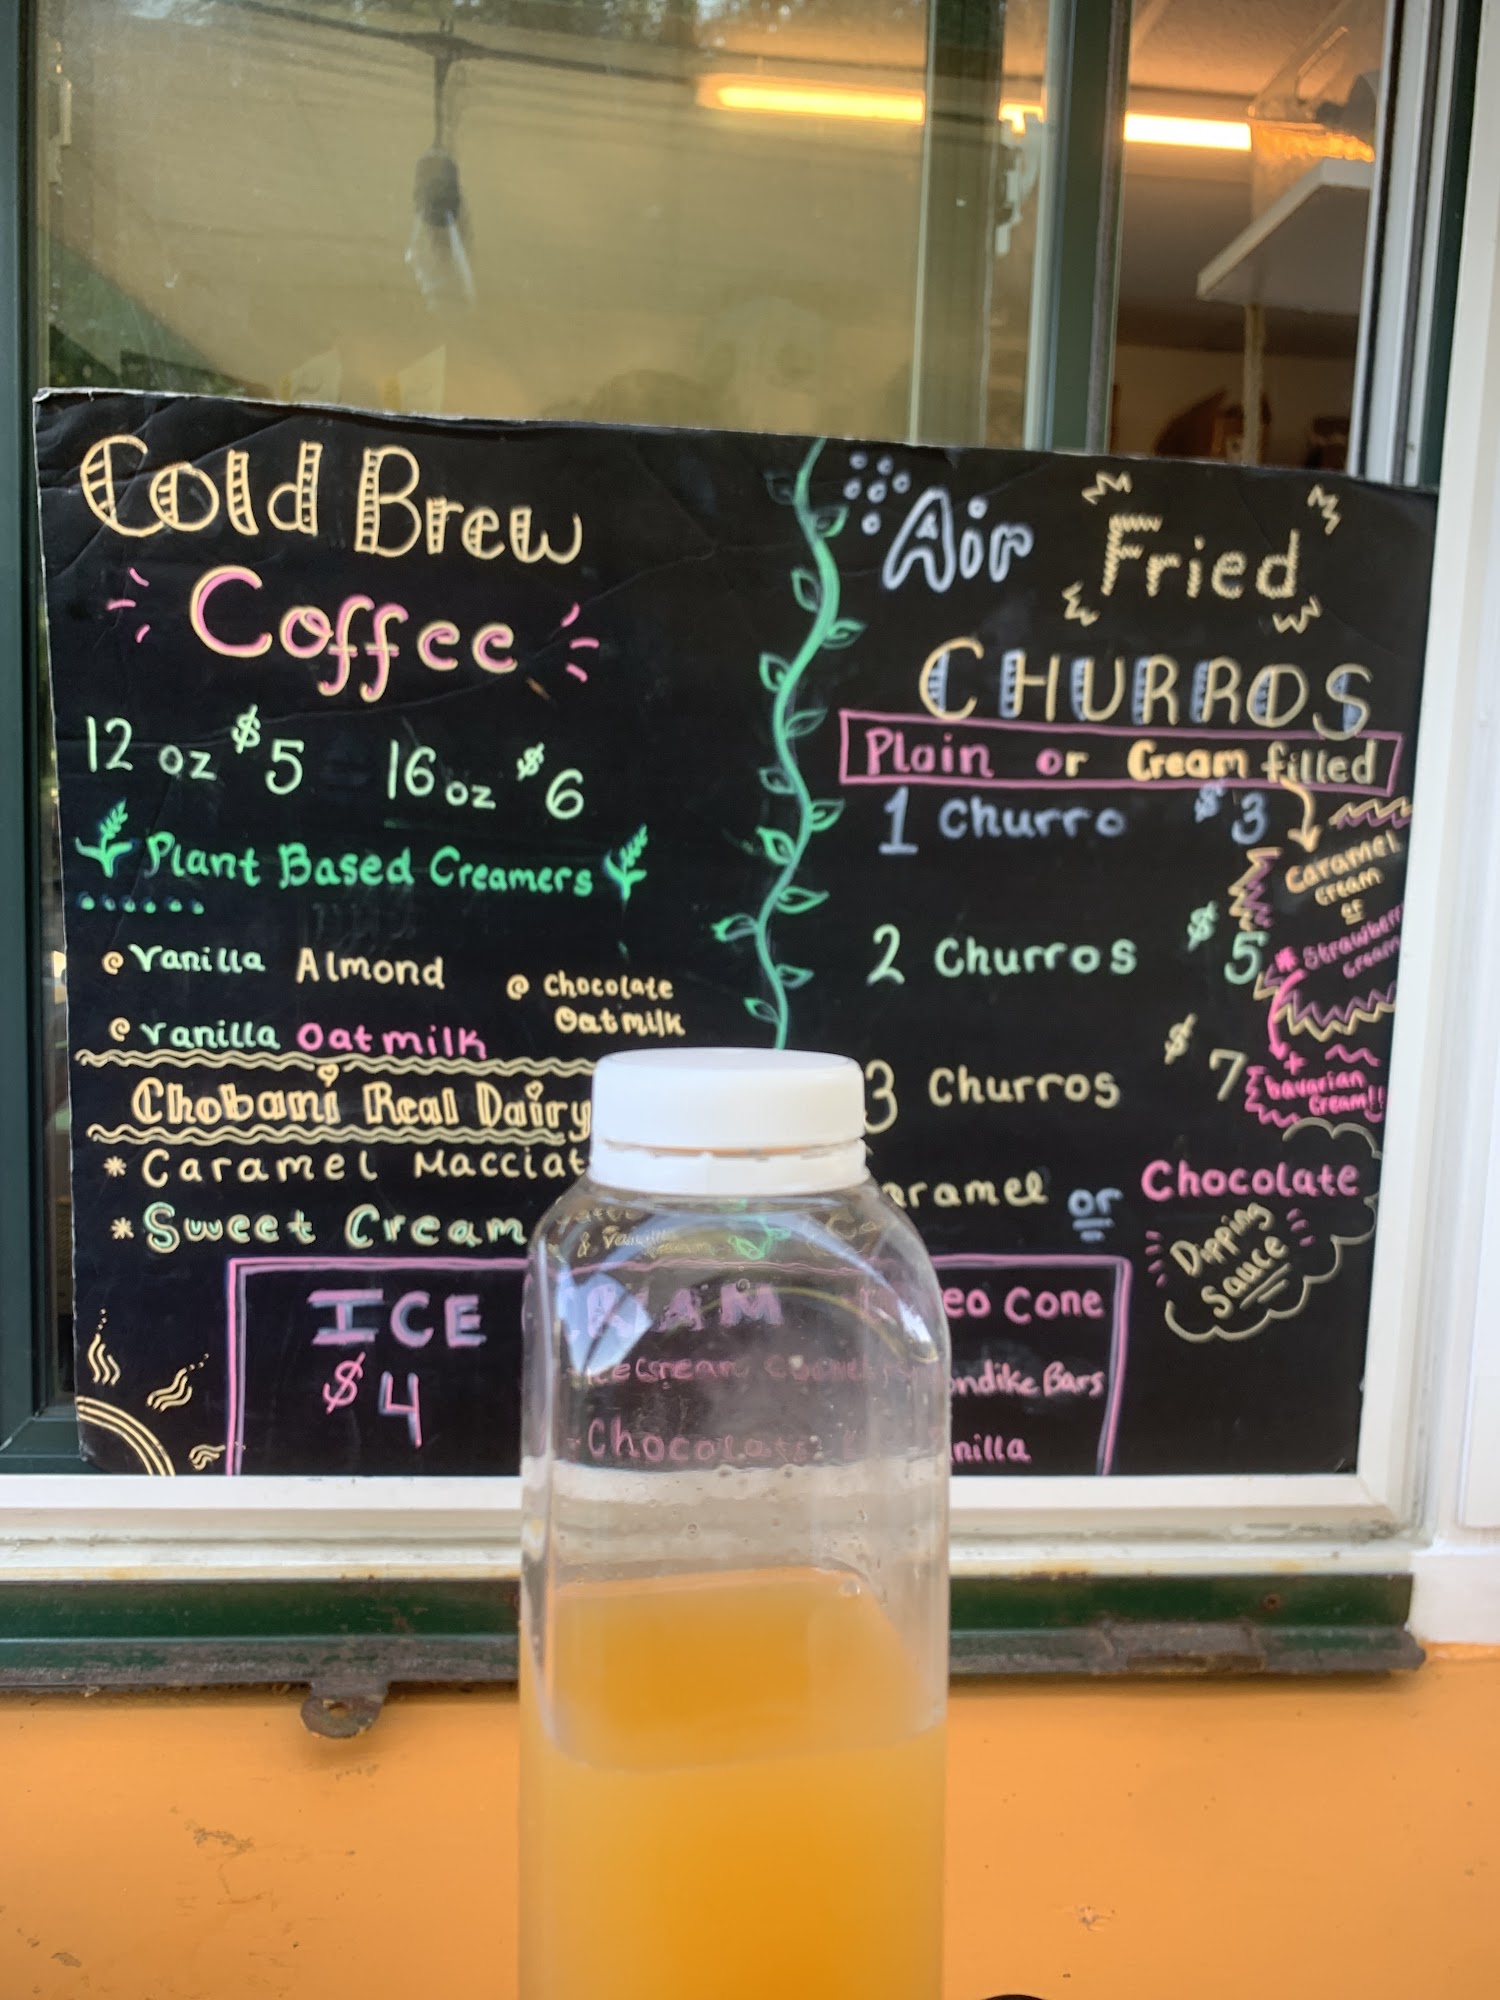 Cold Brew
Coffee
12 oz $5 16 oz $6
Plant Based Creamers
@ Vanilla Almond
@ Chocolate
Oatmilk
@ Vanilla Oatmilk
Chobani Real Dairy
* Caramel Macciat
* Sweet Cream
Air Fried
CHURROS
Plain or Cream filled
1 Churro $3
2 Churros $5
3 Churros $7
Caramel
Cream
or
* Strawberr
Cream
+
bavarian
Cream!!
aramel or Chocolate
Dipping
Sauce
ICE
$4
eo Cone
Icecream
ndike Bars
-Chocolate
nilla